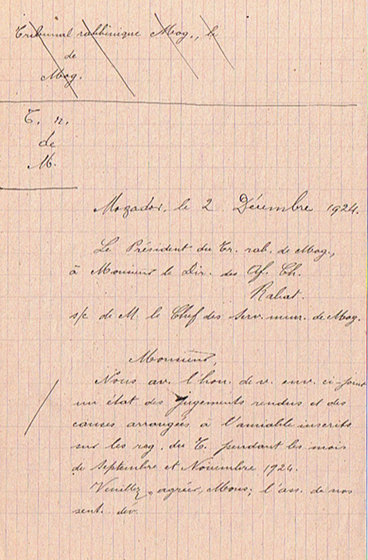 Tribunal rabbinique Mog., le
de
Mog.
T. r.
de
M.
Mogador, le 2 Décembre 1924.
Le Président du Tr. rab. de Mog.,
à Monsieur le Dir. des Af. Ch.
Rabat.
s/c de M. le Chef des Serv. mun. de Mog.
Monsieur,
Nous av. l'hon. de v. env. ci-joint
un état des jugements rendus et des
causes arrangées à l'amiable inscrits
sur les reg. du T. pendant les mois
de Septembre et Novembre 1924.
Veuillez agréer, Mons., l'ass. de nos
sent. dév.